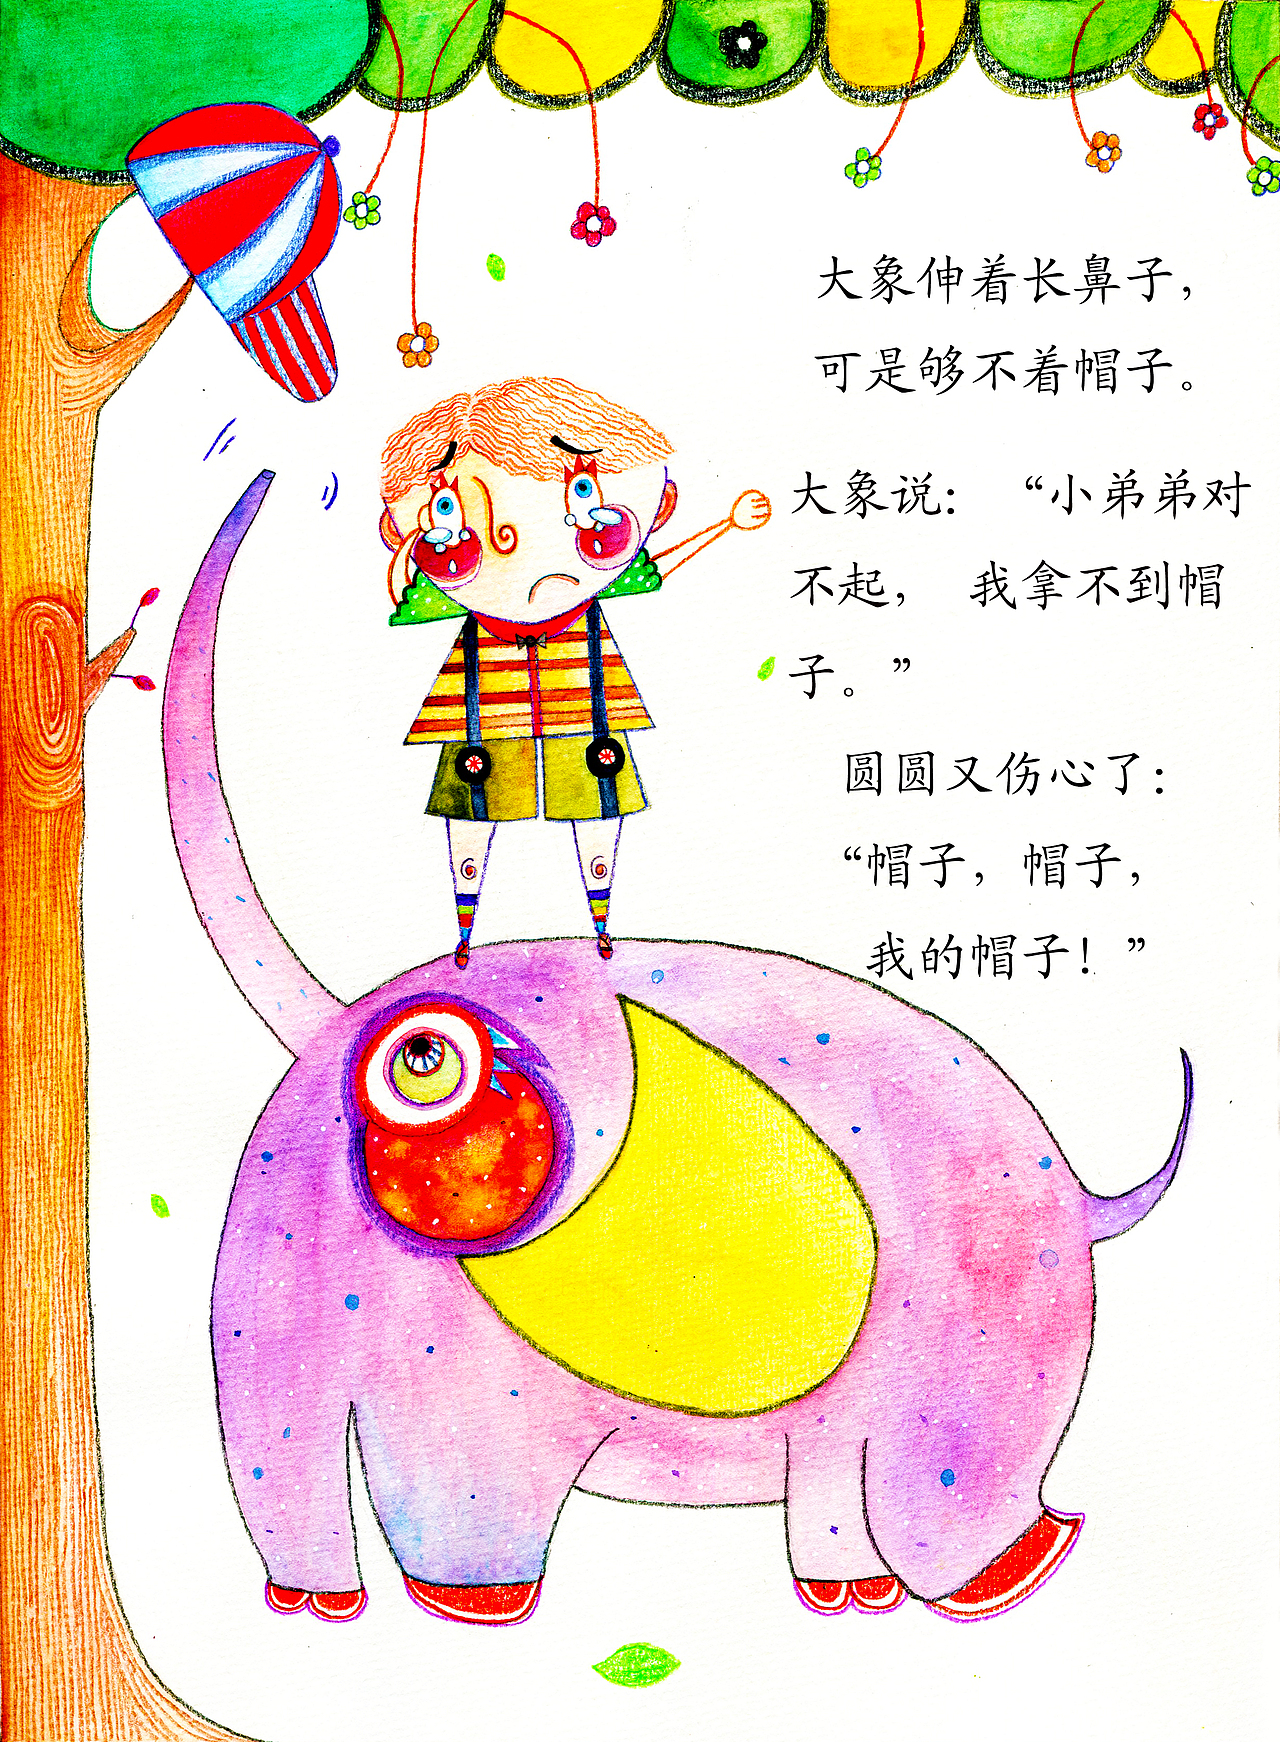 大象伸着长鼻子，
可是够不着帽子。
大象说： “小弟弟对
不起， 我拿不到帽
子。”
圆圆又伤心了：
“帽子，帽子，
我的帽子！”